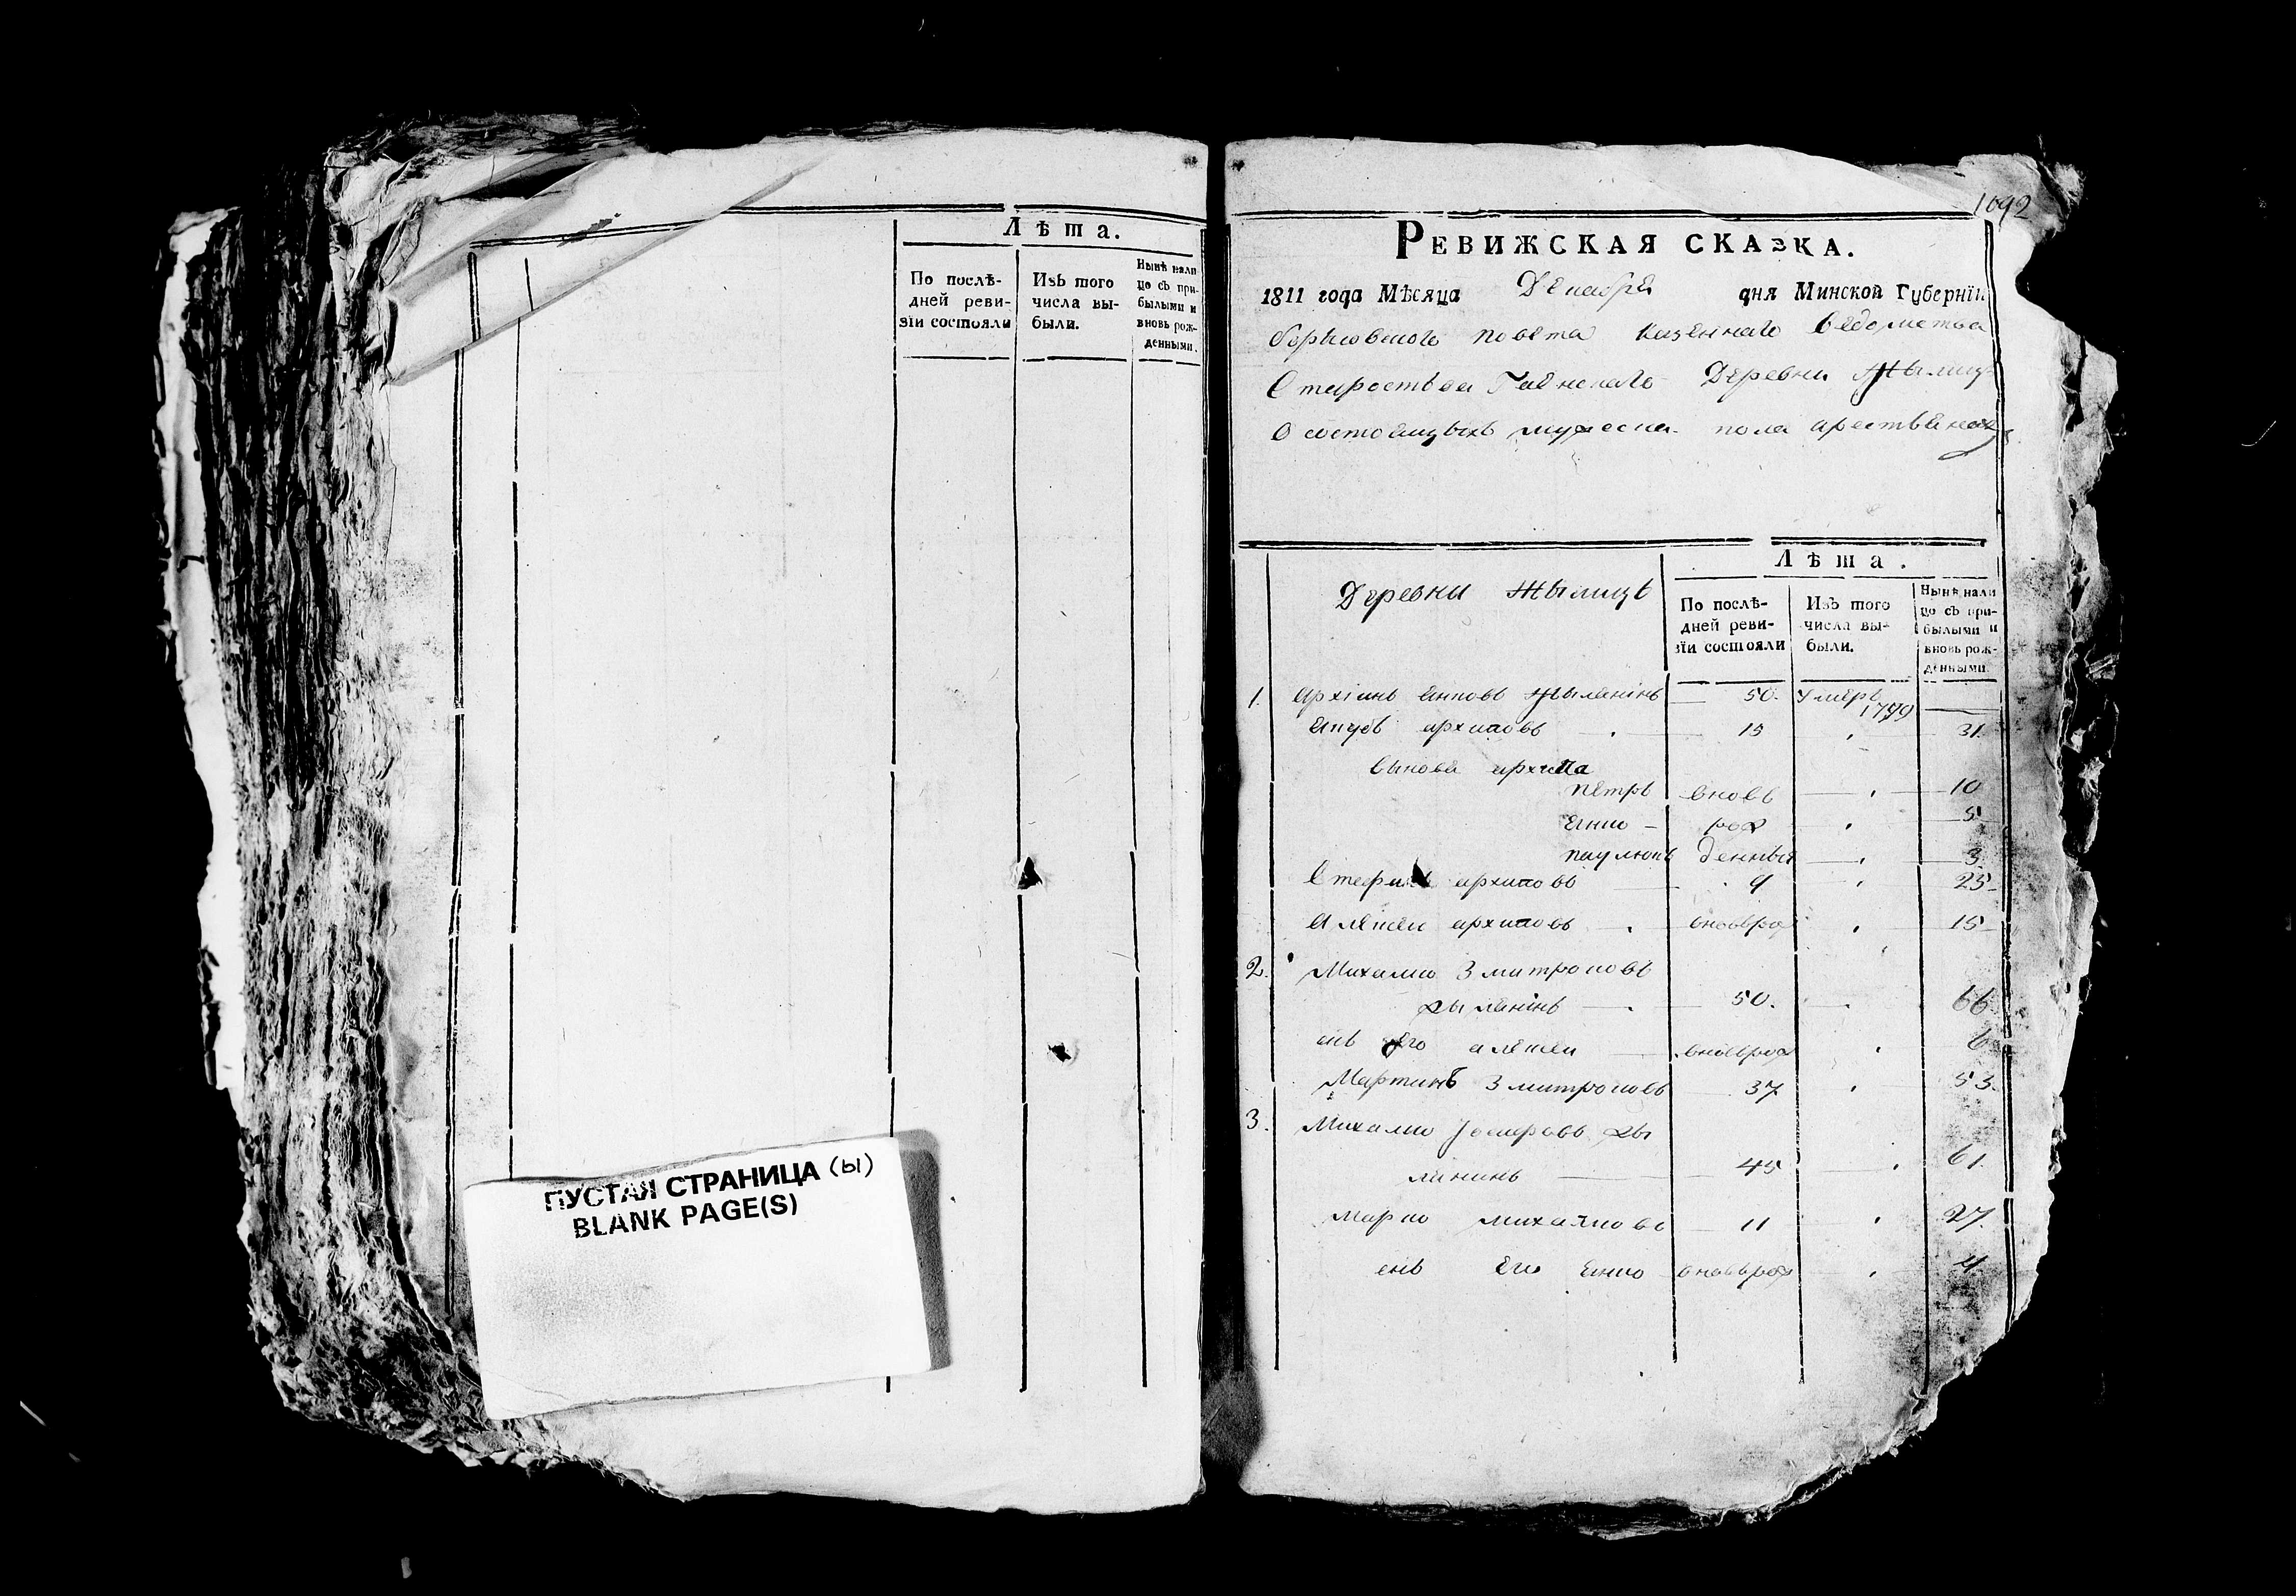 Лѣта.
По послѣ-
дней реви-
зїи состояли
Изъ того
числа вы-
были.
Нынѣ нали
цо съ при-
былыми и
вновь рож-
денными.
ПУСТАЯ СТРАНИЦА (ы)
BLANK PAGE(S)
1692
Ревижская сказка.
1811 года Мѣсяца Декабря дня Минской Губернїи
борисовского повѣта казенного ведомства
Староства Гаенского Деревни Жылиц
О состоящыхъ мужеска пола
Деревни Жылицъ
Лѣта.
По послѣ-
дней реви-
зїи состояли
Изъ того
числа вы-
были.
Нынѣ нали
цо съ при-
былыми и
вновь рож-
денными.
1. 50. Умеръ
1799
Якубъ архиповъ 15 31
Сынове архипа
Петръ вновь 10
рож 5
денныя 3
архиповъ 9 25
Алексеи архиповъ вновьрож 15
2. Михаило Змитроковъ
жылянінъ 50. 66
его алексеи вновьрож 6
Мартинъ Змитроковъ 37 53
3. Михаило жы
лининъ 45 61
Марко 11 27
его вновьрож 4